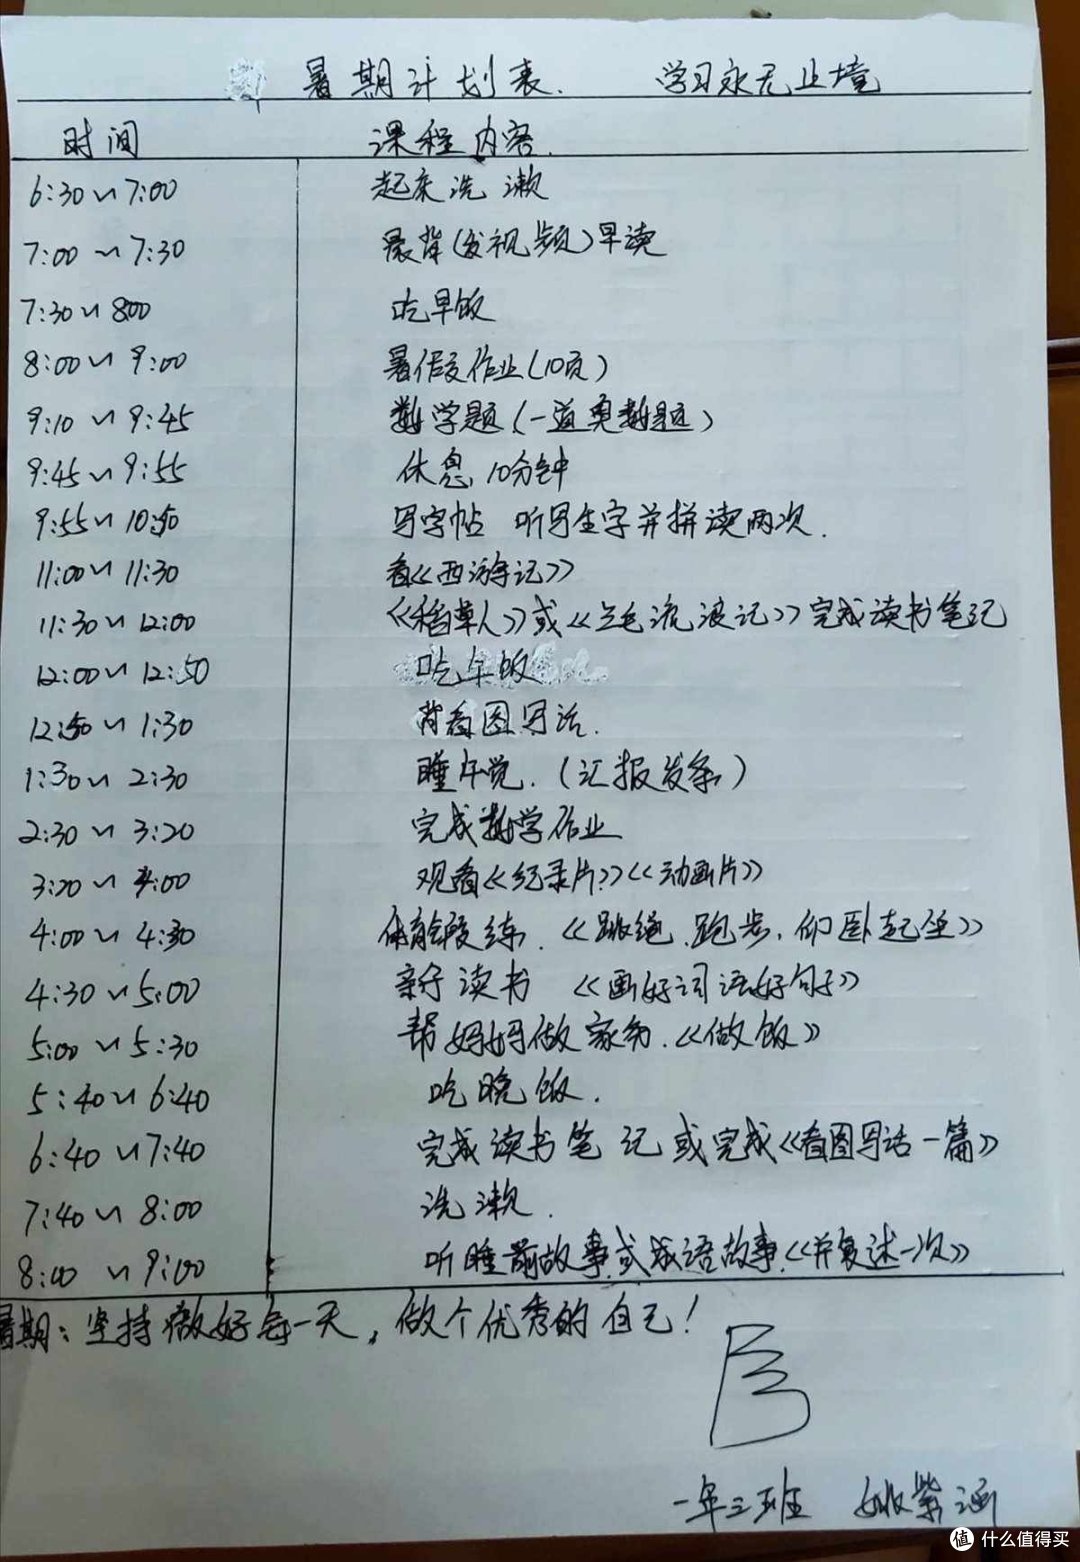 暑期计划表. 学习永无止境
时间 课程内容.
6:30～7:00 起床洗漱
7:00～7:30 晨背(发视频)早读
7:30～8:00 吃早饭
8:00～9:00 暑假作业(10页)
9:10～9:45 数学题(一道奥数题)
9:45～9:55 休息10分钟
9:55～10:50 写字帖 听写生字并拼读两次.
11:00～11:30 看《西游记》
11:30～12:00 《稻草人》或《三毛流浪记》完成读书笔记
12:00～12:50 吃午饭
12:50～1:30 背看图写话.
1:30～2:30 睡午觉.(汇报发条)
2:30～3:20 完成数学作业
3:20～4:00 观看《纪录片》《动画片》
4:00～4:30 体育锻练.《跳绳.跑步.仰卧起坐》
4:30～5:00 亲子读书 《画好词语好句子》
5:00～5:30 帮妈妈做家务.《做饭》
5:40～6:40 吃晚饭.
6:40～7:40 完成读书笔记或完成《看图写话一篇》
7:40～8:00 洗漱.
8:00～9:00 听睡前故事或成语故事《并复述一次》
暑期:坚持做好每一天,做个优秀的自己!
一年三班 姚紫涵
值 什么值得买